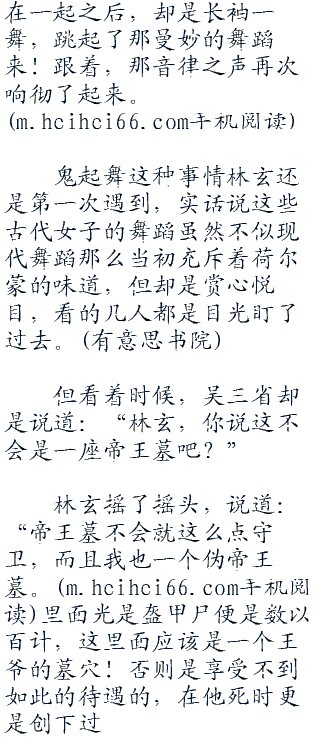 在一起之后，却是长袖一
舞，跳起了那曼妙的舞蹈
来！跟着，那音律之声再次
响彻了起来。
(m.hcihci66.com手机阅读)
鬼起舞这种事情林玄还
是第一次遇到，实话说这些
古代女子的舞蹈虽然不似现
代舞蹈那么当初充斥着荷尔
蒙的味道，但却是赏心悦
目，看的几人都是目光盯了
过去。(有意思书院)
但看着时候，吴三省却
是说道：“林玄，你说这不
会是一座帝王墓吧？”
林玄摇了摇头，说道：
“帝王墓不会就这么点守
卫，而且我也一个伪帝王
墓。(m.hcihci66.com手机阅
读)里面光是盔甲尸便是数以
百计，这里面应该是一个王
爷的墓穴！否则是享受不到
如此的待遇的，在他死时更
是创下过